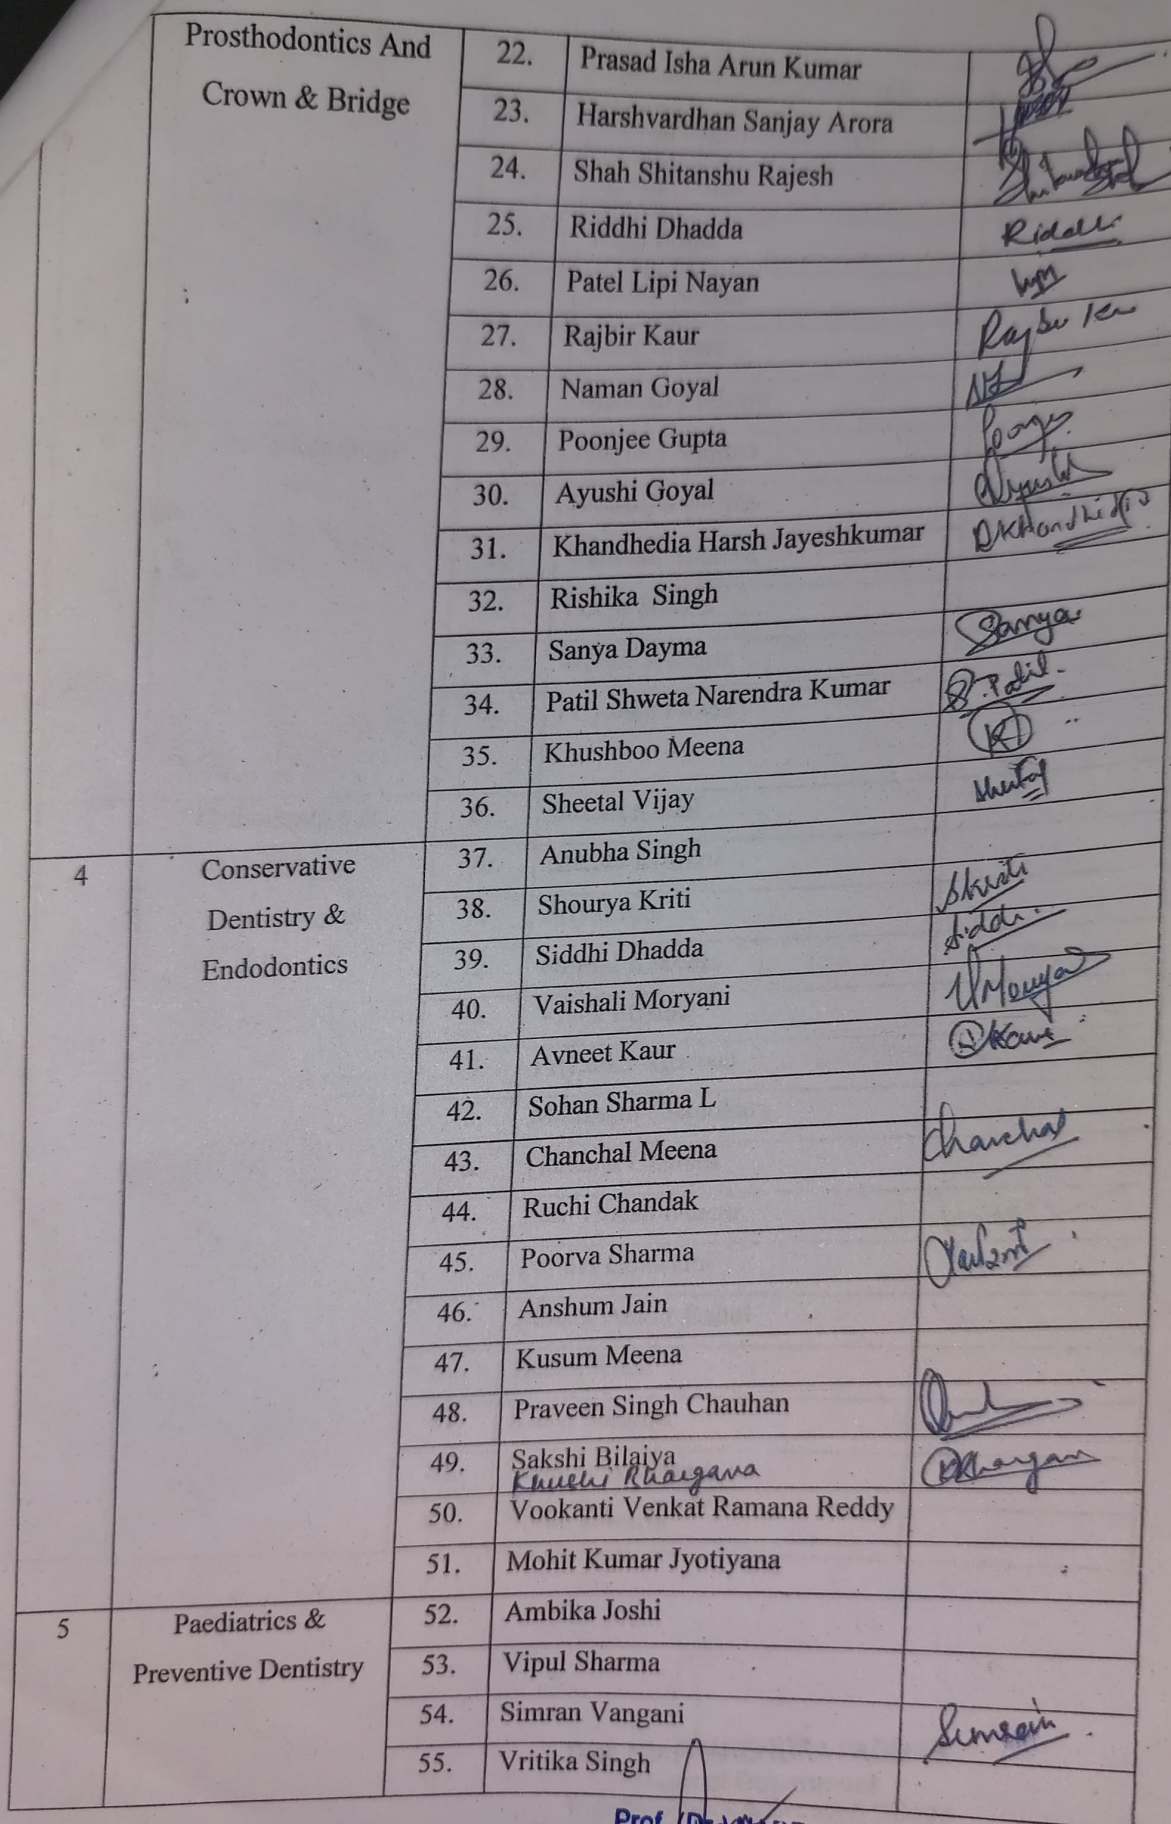 Prosthodontics And
Crown & Bridge
22. Prasad Isha Arun Kumar
23. Harshvardhan Sanjay Arora
24. Shah Shitanshu Rajesh
25. Riddhi Dhadda
26. Patel Lipi Nayan
27. Rajbir Kaur
28. Naman Goyal
29. Poonjee Gupta
30. Ayushi Goyal
31. Khandhedia Harsh Jayeshkumar
32. Rishika Singh
33. Sanya Dayma Sanya
34. Patil Shweta Narendra Kumar S.Patil
35. Khushboo Meena
36. Sheetal Vijay
4 Conservative
Dentistry &
Endodontics
37. Anubha Singh
38. Shourya Kriti
39. Siddhi Dhadda
40. Vaishali Moryani
41. Avneet Kaur
42. Sohan Sharma L
43. Chanchal Meena Chanchal
44. Ruchi Chandak
45. Poorva Sharma
46. Anshum Jain
47. Kusum Meena
48. Praveen Singh Chauhan
49. Sakshi Bilaiya
Bhargava
50. Vookanti Venkat Ramana Reddy
51. Mohit Kumar Jyotiyana
5 Paediatrics &
Preventive Dentistry
52. Ambika Joshi
53. Vipul Sharma
54. Simran Vangani
55. Vritika Singh
Prof.